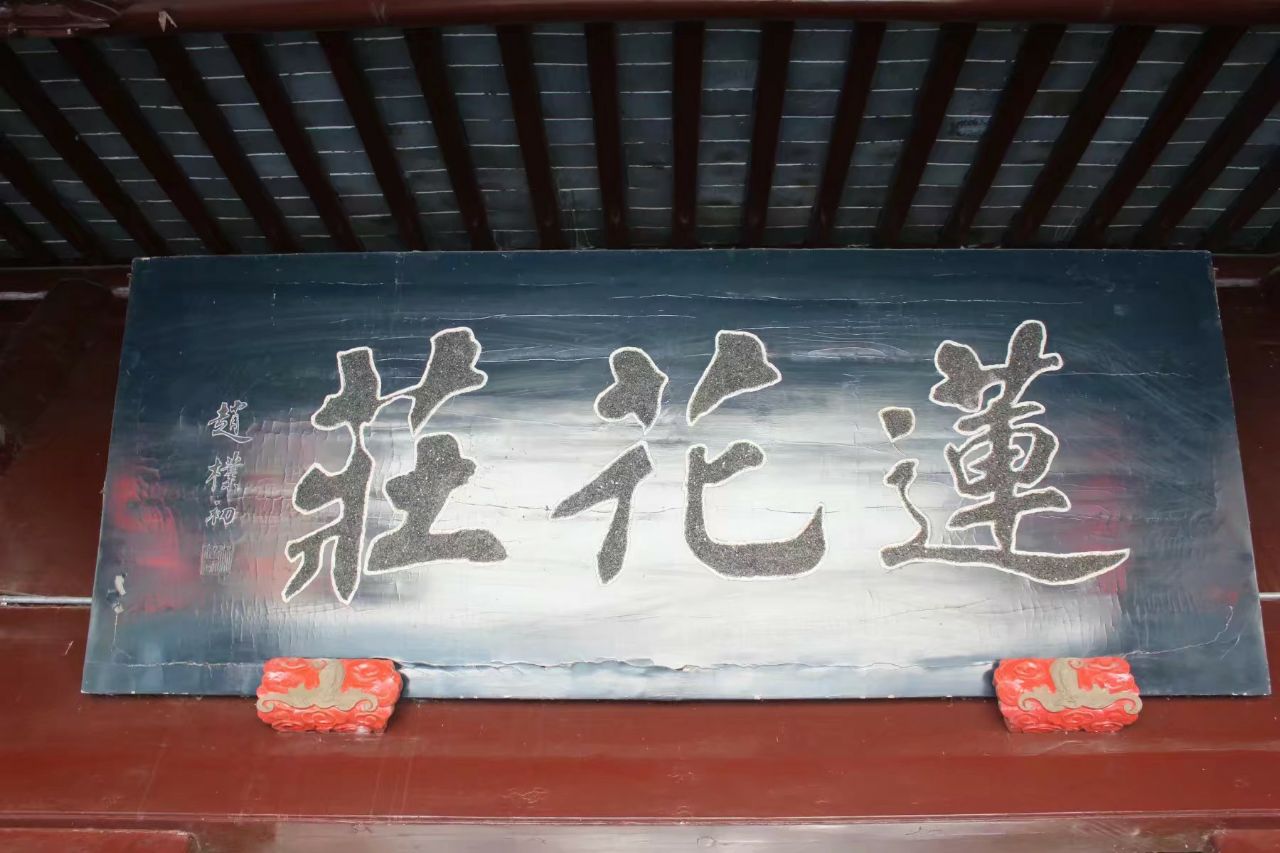 蓮花莊
趙樸初